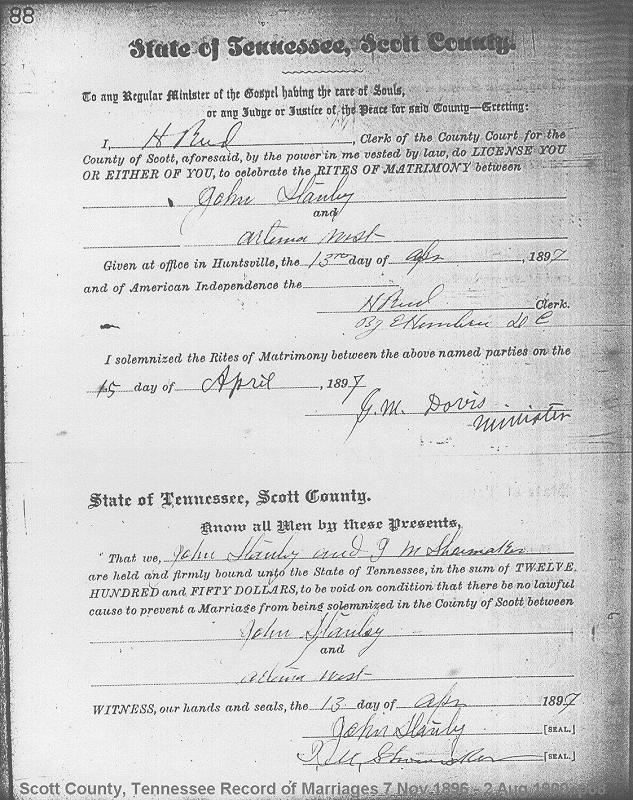 88
State of Tennessee, Scott County.
To any Regular Minister of the Gospel having the care of Souls,
or any Judge or Justice of the Peace for said County—Greeting:
I, H Reed, Clerk of the County Court for the
County of Scott, aforesaid, by the power in me vested by law, do LICENSE YOU
OR EITHER OF YOU, to celebrate the RITES OF MATRIMONY between
John Stanley
and
Artema West
Given at office in Huntsville, the 13 day of Apr, 1897
and of American Independence the
H Reed Clerk.
By D C
I solemnized the Rites of Matrimony between the above named parties on the
15 day of April, 1897
G. M. Dovis
Minister
State of Tennessee, Scott County.
Know all Men by these Presents,
That we, John Stanley and M Shoemaker
are held and firmly bound unto the State of Tennessee, in the sum of TWELVE
HUNDRED and FIFTY DOLLARS, to be void on condition that there be no lawful
cause to prevent a Marriage from being solemnized in the County of Scott between
John Stanley
and
West
WITNESS, our hands and seals, the 13 day of Apr 1897
John Stanly [SEAL.]
Shoemaker [SEAL.]
Scott County, Tennessee Record of Marriages 7 Nov 1896 - 2 Aug